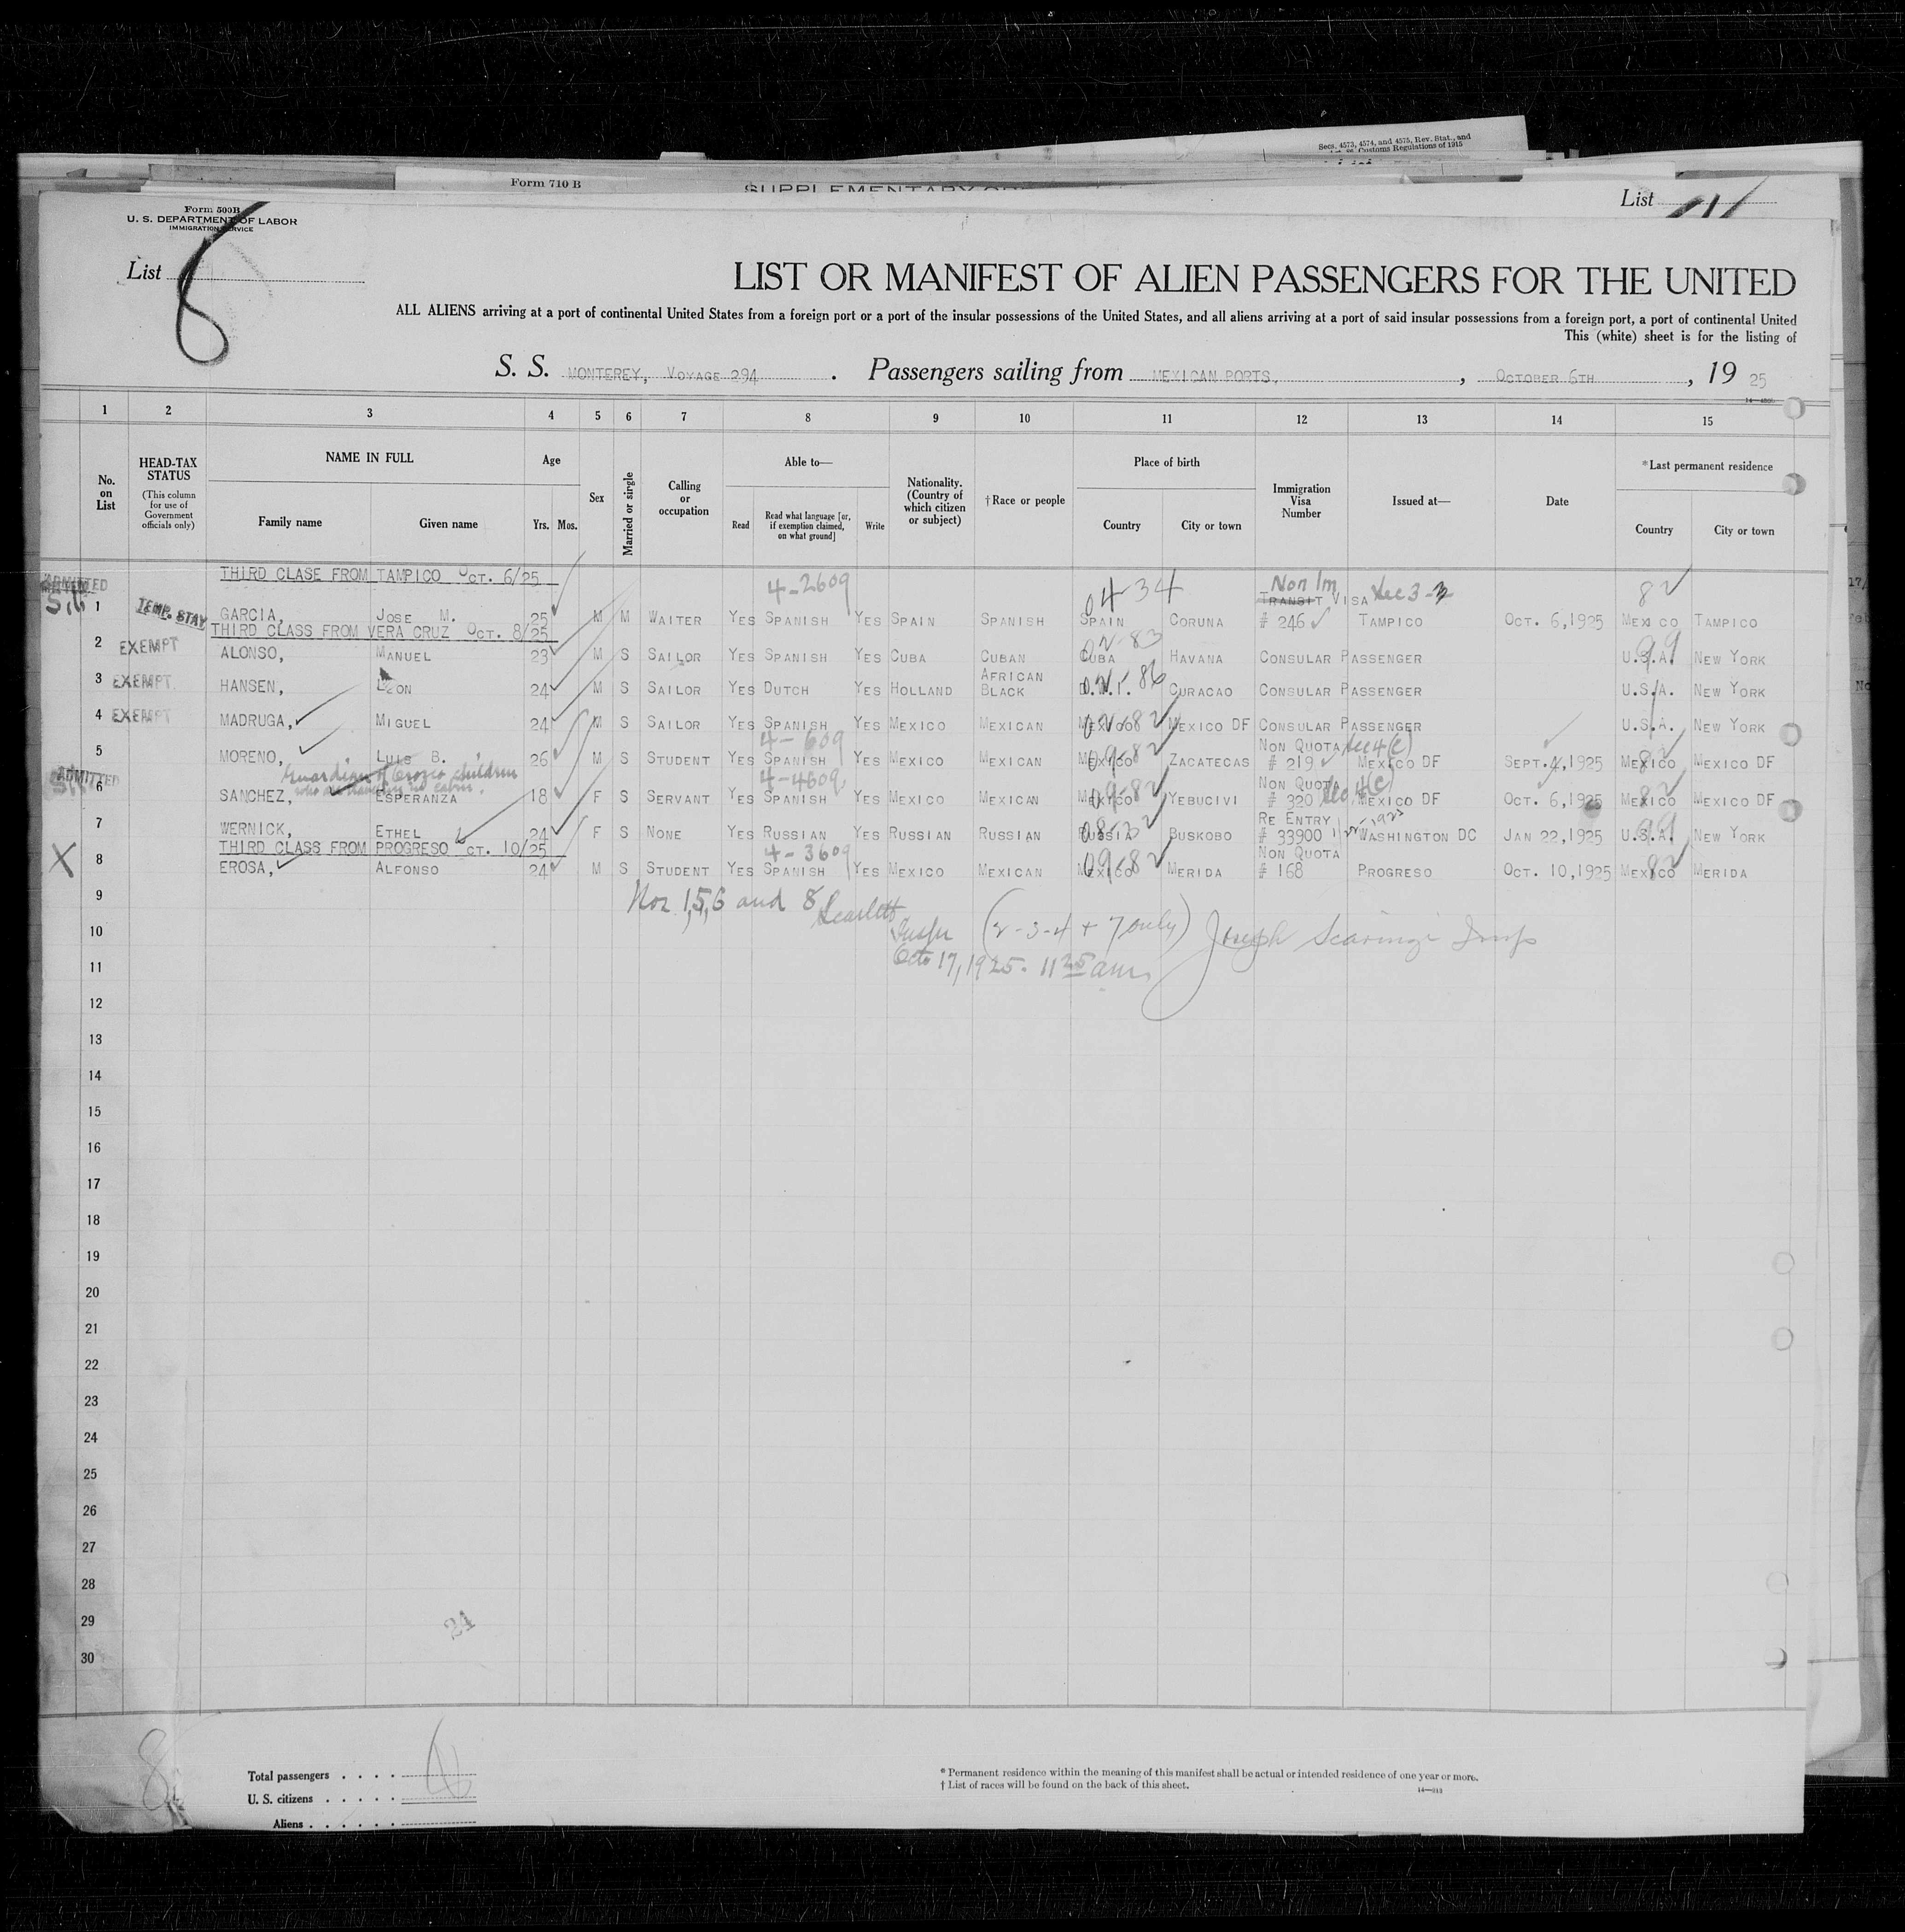 Secs. 4573, 4574, and 4575, Rev. Stat., and
Customs Regulations of 1915
Form 710 B
SUPPLEMENTARY
List
Form 500B
U. S. DEPARTMENT OF LABOR
IMMIGRATION SERVICE
List 8
LIST OR MANIFEST OF ALIEN PASSENGERS FOR THE UNITED
ALL ALIENS arriving at a port of continental United States from a foreign port or a port of the insular possessions of the United States, and all aliens arriving at a port of said insular possessions from a foreign port, a port of continental United
This (white) sheet is for the listing of
S. S. MONTEREY, VOYAGE 294. Passengers sailing from MEXICAN PORTS, , OCTOBER 6TH , 19 25
1 2 3 4 5 6 7 8 9 10 11 12 13 14 15
No. on List
HEAD-TAX STATUS (This column for use of Government officials only)
NAME IN FULL
Family name Given name
Age
Yrs. Mos.
Sex
Married or single
Calling or occupation
Able to—
Read Read what language [or, if exemption claimed, on what ground] Write
Nationality. (Country of which citizen or subject)
†Race or people
Place of birth
Country City or town
Immigration Visa Number
Issued at—
Date
*Last permanent residence
Country City or town
THIRD CLASE FROM TAMPICO OCT. 6/25
ADMITTED 4-2609 04-34 Non Im TRANSIT VISA Sec 3-2 82
1 TEMP. STAY GARCIA, JOSE M. 25 M M WAITER YES SPANISH YES SPAIN SPANISH SPAIN CORUNA # 246 TAMPICO OCT. 6,1925 MEXICO TAMPICO
THIRD CLASS FROM VERA CRUZ OCT. 8/25
02-83 99
2 EXEMPT ALONSO, MANUEL 23 M S SAILOR YES SPANISH YES CUBA CUBAN CUBA HAVANA CONSULAR PASSENGER U.S.A. NEW YORK
3 EXEMPT HANSEN, LEON 24 M S SAILOR YES DUTCH YES HOLLAND AFRICAN BLACK D.W.I. 86 CURACAO CONSULAR PASSENGER U.S.A. NEW YORK
4 EXEMPT MADRUGA, MIGUEL 24 M S SAILOR YES SPANISH YES MEXICO MEXICAN MEXICO MEXICO DF CONSULAR PASSENGER U.S.A. NEW YORK
4-609 09-82 NON QUOTA Sec 4(c) 82
5 MORENO, LUIS B. 26 M S STUDENT YES SPANISH YES MEXICO MEXICAN MEXICO ZACATECAS # 219 MEXICO DF SEPT.4,1925 MEXICO MEXICO DF
Guardian of Orozco children
ADMITTED 4-4609 09-82 NON QUOTA Sec 4(c) 82
6 SANCHEZ, ESPERANZA 18 F S SERVANT YES SPANISH YES MEXICO MEXICAN MEXICO YEBUCIVI # 320 MEXICO DF OCT. 6,1925 MEXICO MEXICO DF
RE ENTRY 99
7 WERNICK, ETHEL 24 F S NONE YES RUSSIAN YES RUSSIAN RUSSIAN RUSSIA BUSKOBO # 33900 WASHINGTON DC JAN 22,1925 U.S.A. NEW YORK
THIRD CLASS FROM PROGRESO OCT. 10/25
4-3609 09-82 NON QUOTA 82
X 8 EROSA, ALFONSO 24 M S STUDENT YES SPANISH YES MEXICO MEXICAN MEXICO MERIDA # 168 PROGRESO OCT. 10,1925 MEXICO MERIDA
9 Nos 1,5,6 and 8 Scarlett
10 Inspr (2-3-4 + 7 only) Joseph Scaringi Insp
11 Oct 17, 1925. 11 25 am
12
13
14
15
16
17
18
19
20
21
22
23
24
25
26
27
28
29
30
24
8
Total passengers
U. S. citizens
Aliens
* Permanent residence within the meaning of this manifest shall be actual or intended residence of one year or more.
† List of races will be found on the back of this sheet.